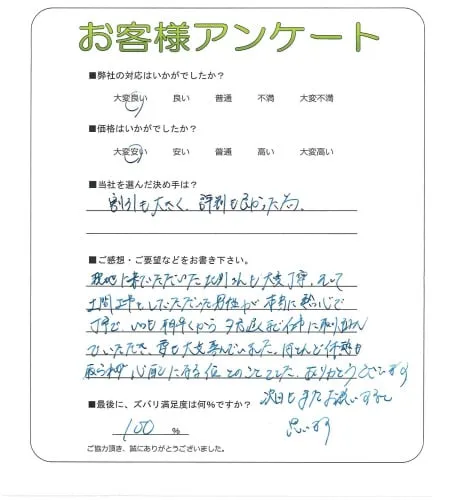 お客様アンケート
■弊社の対応はいかがでしたか？
大変良い 良い 普通 不満 大変不満
■価格はいかがでしたか？
大変安い 安い 普通 高い 大変高い
■当社を選んだ決め手は？
割引も大きく、評判も良かった為。
■ご感想・ご要望などをお書き下さい。
現地に来ていただいた北川さんも大変丁寧、そして
土間工事をしていただいた男性が本当に熱心で
丁寧で、いつも朝早くから夕方遅くまで仕事に取り組んで
いただき、妻も大変喜んでいました。ほとんど休憩も
取られず心配になる位とのことでした。ありがとうございます
次回もまたお願いすると
思います
■最後に、ズバリ満足度は何%ですか？
100 %
ご協力頂き、誠にありがとうございました。